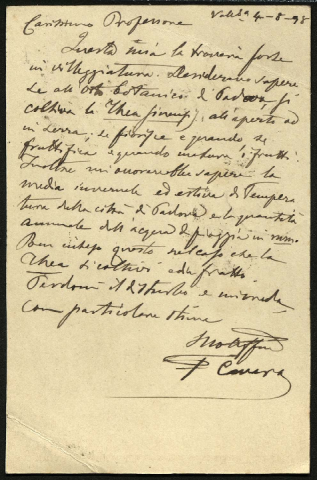 Carissimo Professore Valle 4-8-98
Questa mia la troverà forse
in villeggiatura. Desideravo sapere
se all'Orto botanico di Padova si
coltiva la Thea all'aperto od
in serra; se fiorifica e quando, se
fruttifica e quando matura i frutti.
Inoltre mi occorrerebbe sapere la
media invernale ed estiva di tempera
tura della città di Padova e la quantità
annuale dell'acqua di pioggia in mm.
Ben inteso questo nel caso che la
Thea si coltivi e dia frutto.
Perdoni il disturbo e mi creda,
con particolare stima
Suo aff
F Cavara